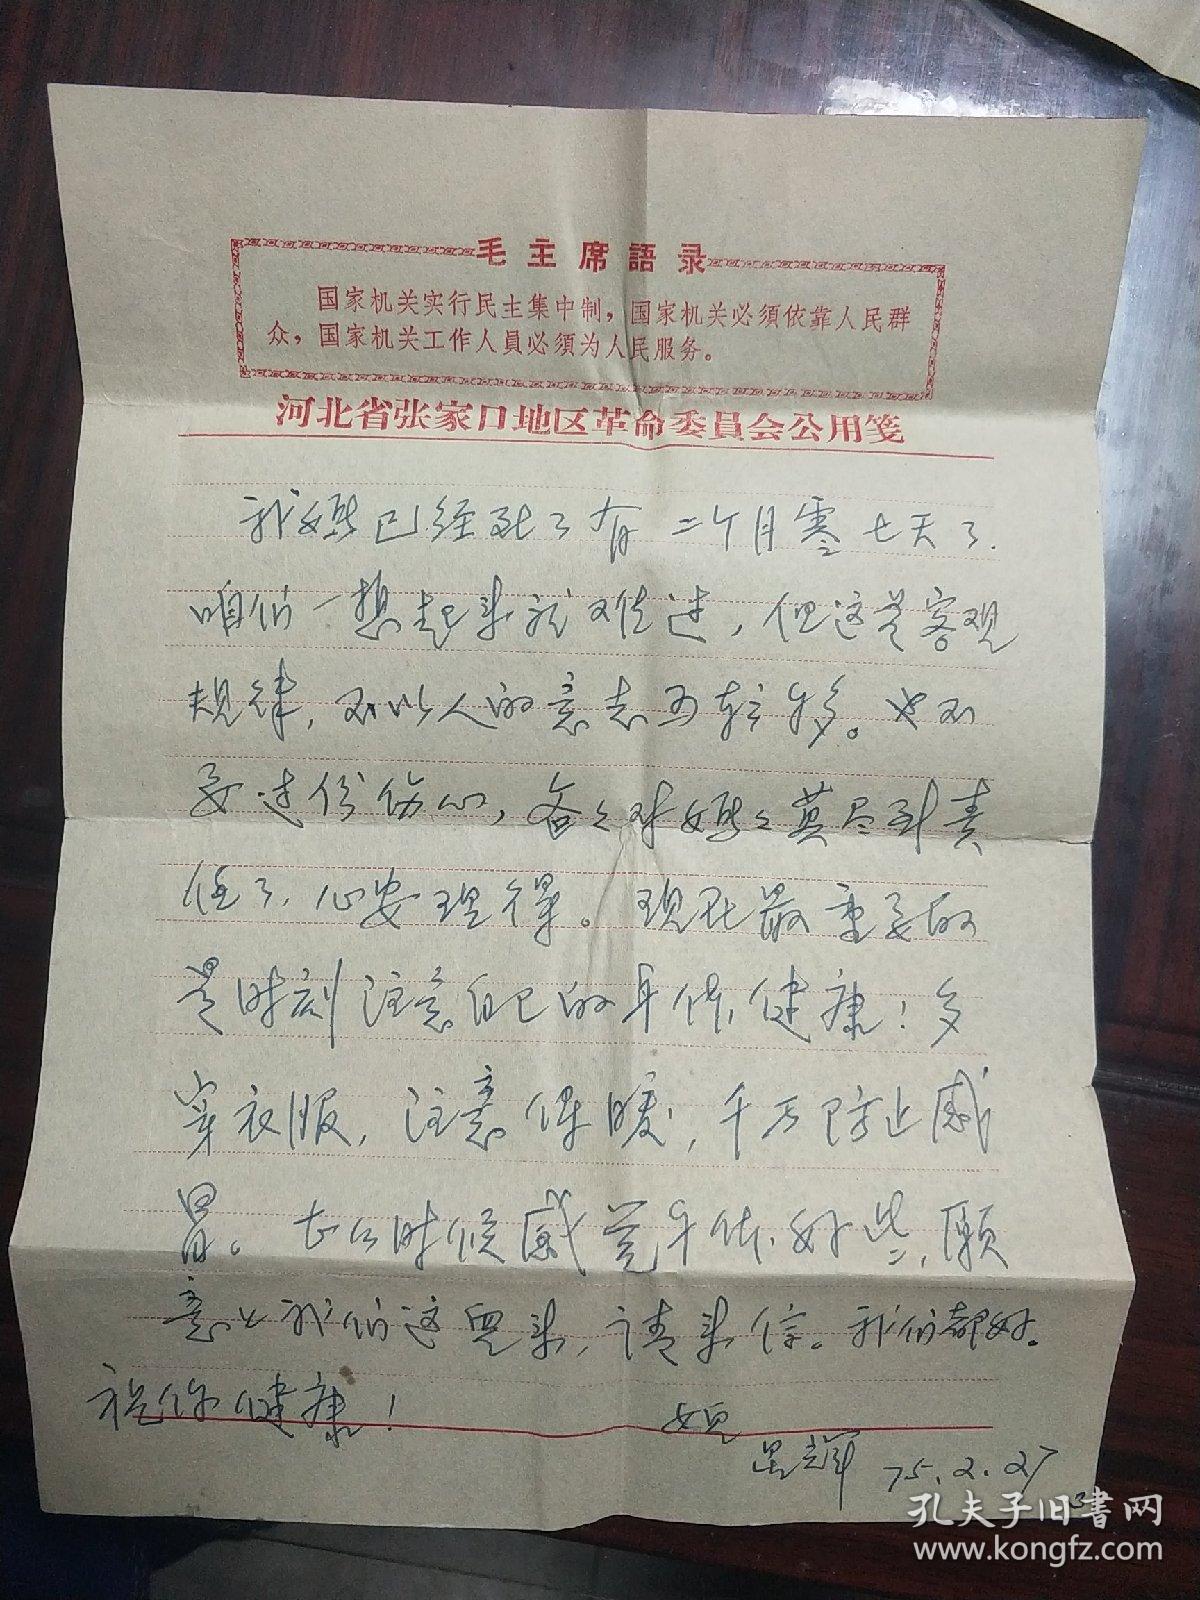 毛主席語录
国家机关实行民主集中制，国家机关必须依靠人民群
众，国家机关工作人員必須为人民服务。
河北省张家口地区革命委員会公用笺
我妈已经死了有二个月零七天了.
咱们一想起来就难过，但这是客观
规律，不以人的意志而转移。也不
要过份伤心，爸々对妈々莫尽到责
任了，心安理得。现在最重要的
是时刻注意自己的身体健康！多
穿衣服，注意保暖，千万防止感
冒。什么时候感觉身体好些，愿
意上我们这里来，请来信。我们都好。
祝你健康！
75.2.27
3
孔夫子旧书网
www.kongfz.com